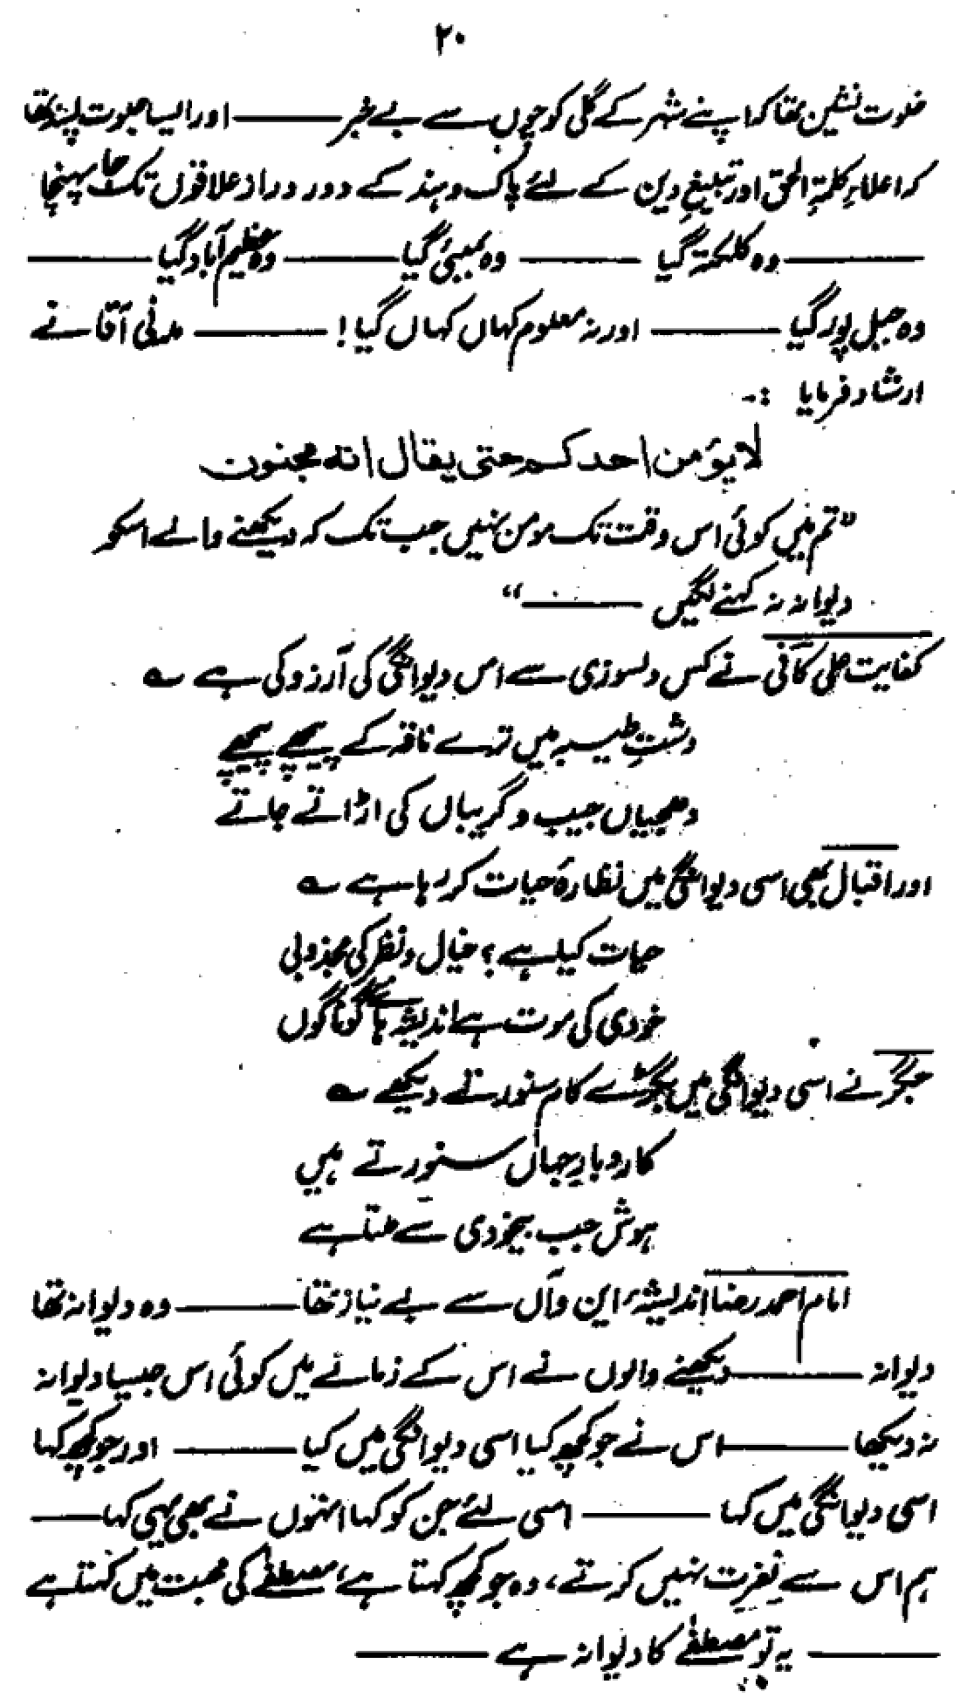 ۲۰
خلوت نشین تھا کہ اپنے شہر کے گلی کوچوں سے بے خبر ——— اور ایسا جلوت پسند تھا
کہ اعلاءِ کلمۃ الحق اور تبلیغِ دین کے لئے پاک و ہند کے دور دراز علاقوں تک جا پہنچا
——— وہ کلکتہ گیا ——— وہ بمبئی گیا ——— وہ عظیم آباد گیا ———
وہ جبل پور گیا ——— اور نہ معلوم کہاں کہاں گیا! ——— مدنی آقا نے
ارشاد فرمایا :-
لا یؤمن احدکم حتی یقال انہ مجنون
"تم میں کوئی اس وقت تک مومن نہیں جب تک کہ دیکھنے والے اسکو
دیوانہ نہ کہنے لگیں ———"
کفایت علی کافی نے کس دلسوزی سے اس دیوانگی کی آرزو کی ہے ؎
دشتِ طیبہ میں ترے ناقہ کے پیچھے پیچھے
دھجیاں جیب و گریباں کی اڑاتے جاتے
اور اقبال بھی اسی دیوانگی میں نظارۂ حیات کر رہا ہے ؎
حیات کیا ہے؟ خیال و نظر کی مجذوبی
خودی کی موت ہے اندیشہ ہائے گوناگوں
جگر نے اسی دیوانگی میں بگڑے کام سنورتے دیکھے ؎
کاروبارِ جہاں سنورتے ہیں
ہوش جب بیخودی سے ملتا ہے
امام احمد رضا اندیشۂ این و آں سے بے نیاز تھا ——— وہ دیوانہ تھا
دیوانہ ——— دیکھنے والوں نے اس کے زمانے میں کوئی اس جیسا دیوانہ
نہ دیکھا ——— اس نے جو کچھ کیا اسی دیوانگی میں کیا ——— اور جو کچھ کہا
اسی دیوانگی میں کہا ——— اسی لئے جن کو کہا انہوں نے بھی یہی کہا ———
ہم اس سے نفرت نہیں کرتے، وہ جو کچھ کہتا ہے، مصطفےٰ کی محبت میں کہتا ہے
——— یہ تو مصطفےٰ کا دیوانہ ہے ———